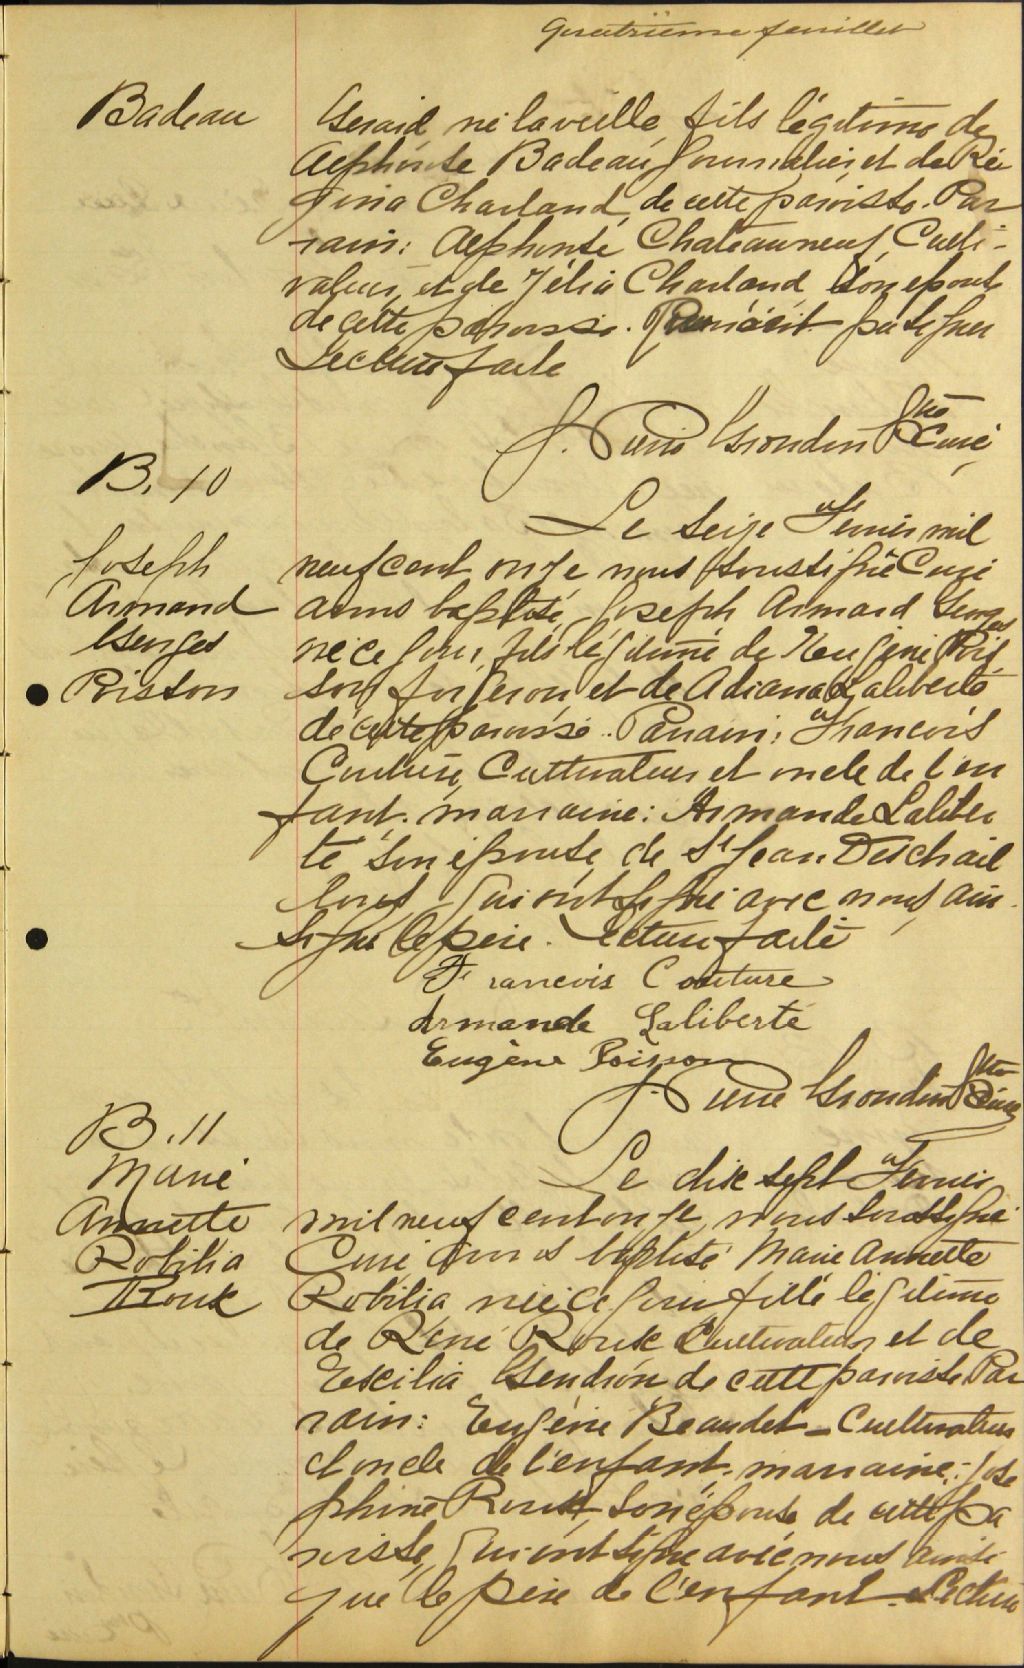 quatrième feuillet
Badeau
Gérard né la veille, fils légitime de
Alphonse Badeau journalier, et de Ré
gina Charland, de cette paroisse. Par
rain: Alphonse Chateauneuf, Culti-
vateur, et de Félia Charland son épouse
de cette paroisse. Qui n'ont pu signer
Lecture faite
J. Pierre Grondin Ptre
Curé
B. 10
Joseph
Armand
Georges
Poisson
Le seize Février mil
neuf cent onze nous soussigné Curé
avons baptisé, Joseph Armand Georges
né ce jour, fils légitime de Eugène Pois
son forgeron et de Adiana Laliberté
de cette paroisse. Parrain: François
Couture, Cultivateur et oncle de l'en
fant. marraine: Armande Laliber
té son épouse, de St Jean Deschail
lons, qui ont signé avec nous, ain
si que le père. Lecture faite
Francois Couture
Armande Laliberté
Eugène Poisson
J. Pierre Grondin Ptre
Curé
B. 11
Marie
Annette
Robilia
Rouk
Le dix sept Février
mil neuf cent onze, nous soussigné
Curé avons baptisé Marie Annette
Robilia née ce jour fille légitime
de René Rouk Cultivateur et de
Exilia Gendron de cette paroisse. Par
rain: Eugène Beaudet - Cultivateur
et oncle de l'enfant. marraine: José
phine Rouk, son épouse de cette pa
roisse, qui ont signé avec nous ainsi
que le père de l'enfant. Lecture